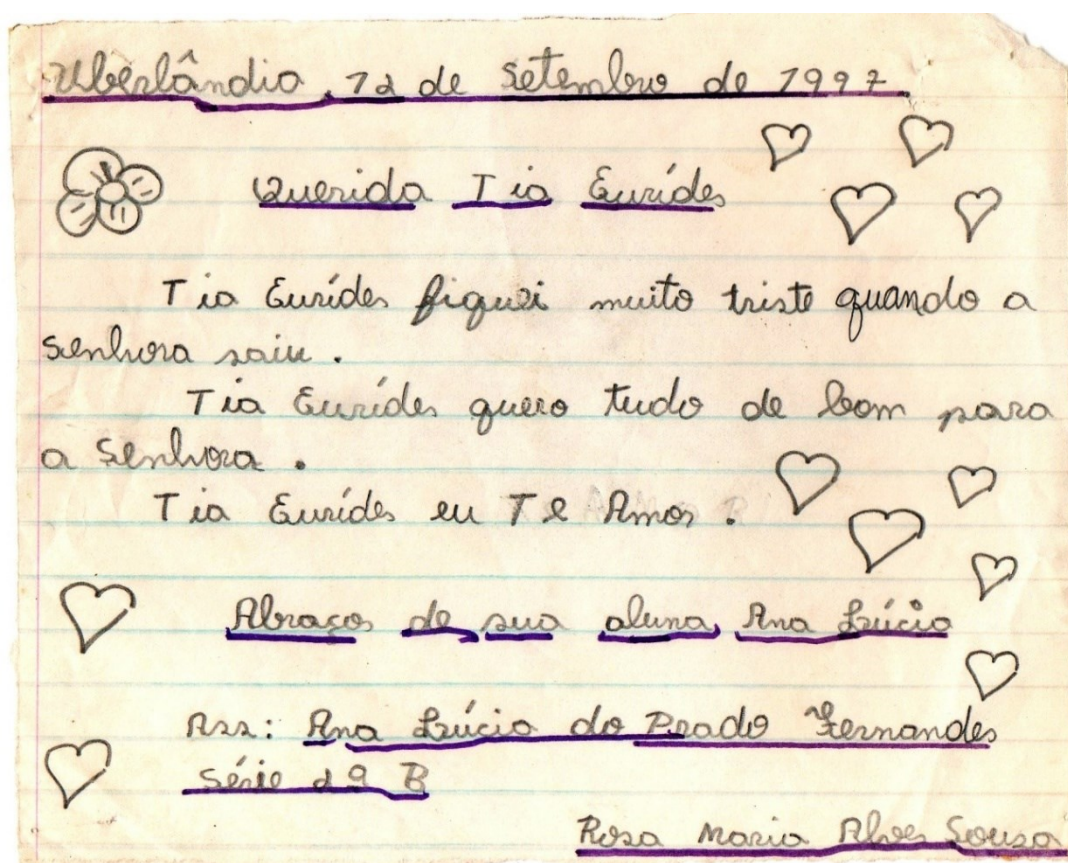 Uberlândia, 12 de Setembro de 1997.
Querida Tia Eurídes
Tia Eurídes fiquei muito triste quando a
Senhora saiu.
Tia Eurídes quero tudo de bom para
a Senhora.
Tia Eurídes eu Te Amos.
Abraços de sua aluna, Ana Lúcia
Ass: Ana Lúcia do Prado Fernandes
Série 2ª B
Rosa Maria Alves Souza